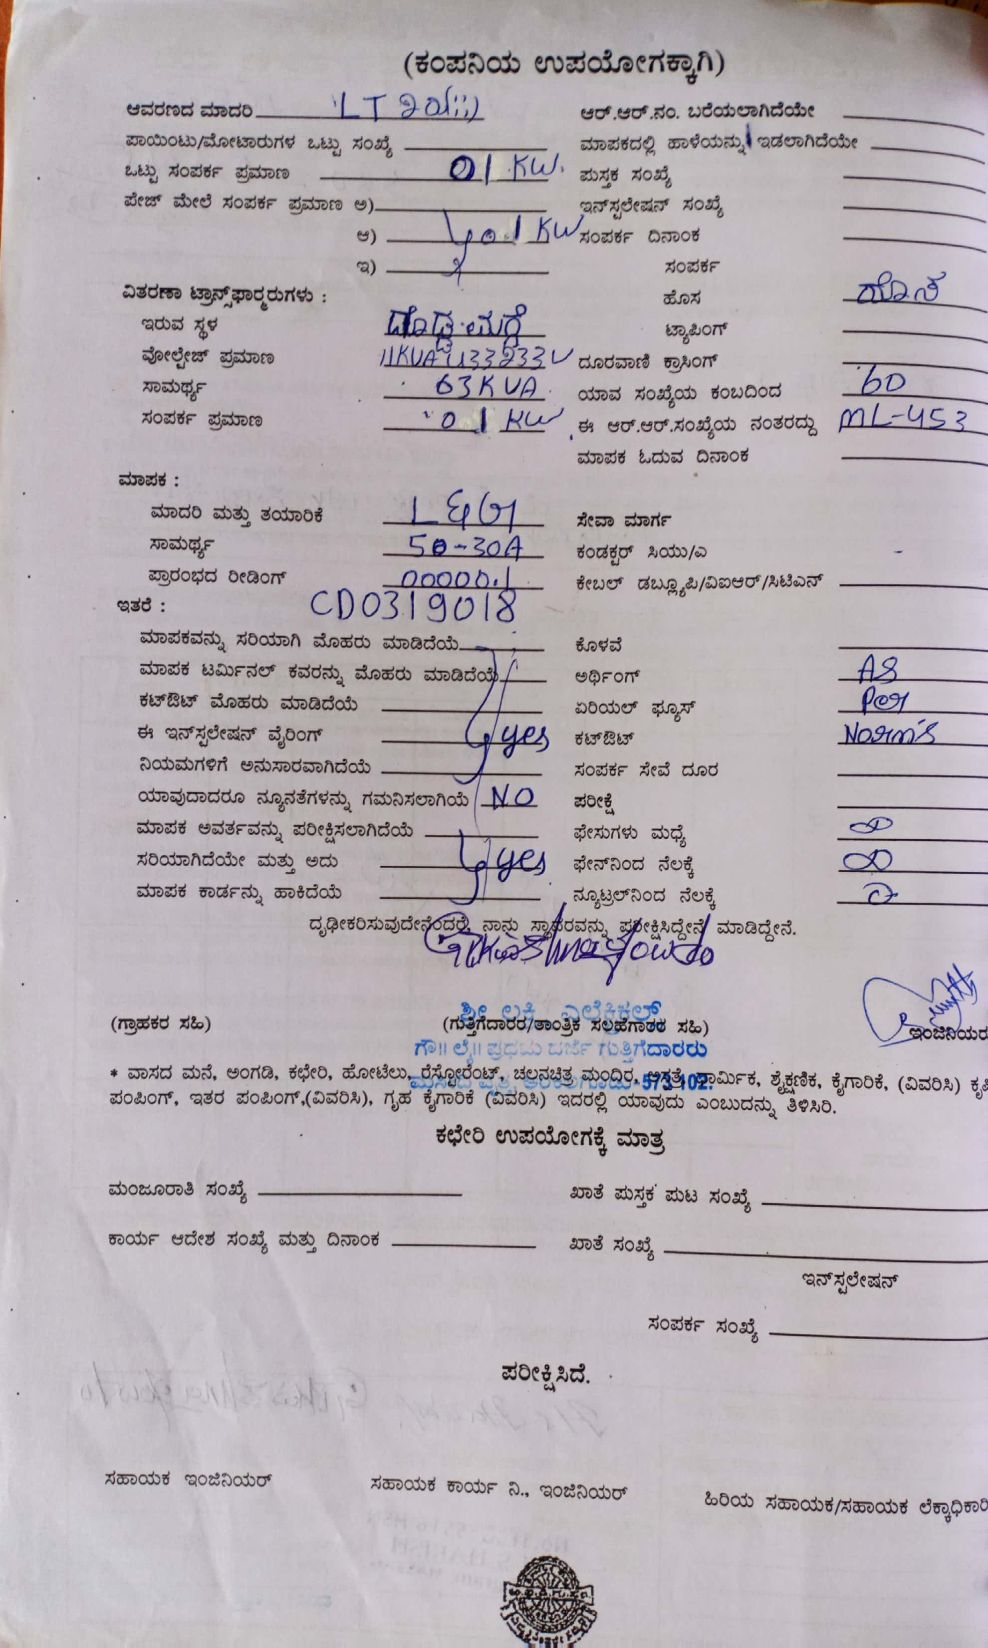 (ಕಂಪನಿಯ ಉಪಯೋಗಕ್ಕಾಗಿ)
ಆವರಣದ ಮಾದರಿ LT ಆರ್.ಆರ್.ನಂ. ಬರೆಯಲಾಗಿದೆಯೇ
ಪಾಯಿಂಟು/ಮೋಟಾರುಗಳ ಒಟ್ಟು ಸಂಖ್ಯೆ ಮಾಪಕದಲ್ಲಿ ಹಾಳೆಯನ್ನು ಇಡಲಾಗಿದೆಯೇ
ಒಟ್ಟು ಸಂಪರ್ಕ ಪ್ರಮಾಣ 01 KW. ಪುಸ್ತಕ ಸಂಖ್ಯೆ
ಪೇಜ್ ಮೇಲೆ ಸಂಪರ್ಕ ಪ್ರಮಾಣ ಅ) ಇನ್‌ಸ್ಟಲೇಷನ್ ಸಂಖ್ಯೆ
ಆ) 0.1 KW ಸಂಪರ್ಕ ದಿನಾಂಕ
ಇ) ಸಂಪರ್ಕ
ವಿತರಣಾ ಟ್ರಾನ್ಸ್‌ಫಾರ್‍ಮರುಗಳು : ಹೊಸ ಹೊಸ
ಇರುವ ಸ್ಥಳ ದೊಡ್ಡಮಗ್ಗೆ ಟ್ಯಾಪಿಂಗ್
ವೋಲ್ಟೇಜ್ ಪ್ರಮಾಣ 11KVA ದೂರವಾಣಿ ಕ್ರಾಸಿಂಗ್
ಸಾಮರ್ಥ್ಯ 63KVA ಯಾವ ಸಂಖ್ಯೆಯ ಕಂಬದಿಂದ 60
ಸಂಪರ್ಕ ಪ್ರಮಾಣ 0.1 KW ಈ ಆರ್.ಆರ್.ಸಂಖ್ಯೆಯ ನಂತರದ್ದು ML-453
ಮಾಪಕ ಓದುವ ದಿನಾಂಕ
ಮಾಪಕ :
ಮಾದರಿ ಮತ್ತು ತಯಾರಿಕೆ L&G ಸೇವಾ ಮಾರ್ಗ
ಸಾಮರ್ಥ್ಯ -30A ಕಂಡಕ್ಟರ್ ಸಿಯು/ಎ -
ಪ್ರಾರಂಭದ ರೀಡಿಂಗ್ 00000.1 ಕೇಬಲ್ ಡಬ್ಲ್ಯೂಪಿ/ವಿಐಆರ್/ಸಿಟಿಎನ್
ಇತರೆ : CD0319018
ಮಾಪಕವನ್ನು ಸರಿಯಾಗಿ ಮೊಹರು ಮಾಡಿದೆಯೆ ಕೊಳವೆ
ಮಾಪಕ ಟರ್ಮಿನಲ್ ಕವರನ್ನು ಮೊಹರು ಮಾಡಿದೆಯೆ ಅರ್ಥಿಂಗ್ AS
ಕಟ್‌ಔಟ್ ಮೊಹರು ಮಾಡಿದೆಯೆ ಏರಿಯಲ್ ಫ್ಯೂಸ್ Per
ಈ ಇನ್‌ಸ್ಟಲೇಷನ್ ವೈರಿಂಗ್ yes ಕಟ್‌ಔಟ್ Norm's
ನಿಯಮಗಳಿಗೆ ಅನುಸಾರವಾಗಿದೆಯೆ ಸಂಪರ್ಕ ಸೇವೆ ದೂರ
ಯಾವುದಾದರೂ ನ್ಯೂನತೆಗಳನ್ನು ಗಮನಿಸಲಾಗಿಯೆ NO ಪರೀಕ್ಷೆ
ಮಾಪಕ ಅವರ್ತವನ್ನು ಪರೀಕ್ಷಿಸಲಾಗಿದೆಯೆ ಫೇಸುಗಳು ಮಧ್ಯೆ ∞
ಸರಿಯಾಗಿದೆಯೇ ಮತ್ತು ಅದು yes ಫೇನ್‌ನಿಂದ ನೆಲಕ್ಕೆ ∞
ಮಾಪಕ ಕಾರ್ಡನ್ನು ಹಾಕಿದೆಯೆ ನ್ಯೂಟ್ರಲ್‌ನಿಂದ ನೆಲಕ್ಕೆ
ದೃಢೀಕರಿಸುವುದೇನೆಂದರೆ, ನಾನು ಸ್ಥಾವರವನ್ನು ಪರೀಕ್ಷಿಸಿದ್ದೇನೆ ಮಾಡಿದ್ದೇನೆ.
ಶ್ರೀ ಲಕ್ಷ್ಮಿ ಎಲೆಕ್ಟ್ರಿಕಲ್
(ಗ್ರಾಹಕರ ಸಹಿ) (ಗುತ್ತಿಗೆದಾರರ/ತಾಂತ್ರಿಕ ಸಲಹೆಗಾರರ ಸಹಿ) ಇಂಜಿನಿಯರ
ಗೌ|| ಲೈ|| ಪ್ರಥಮ ದರ್ಜೆ ಗುತ್ತಿಗೆದಾರರು
* ವಾಸದ ಮನೆ, ಅಂಗಡಿ, ಕಛೇರಿ, ಹೋಟೆಲು, ರೆಸ್ಟೋರೆಂಟ್, ಚಲನಚಿತ್ರ ಮಂದಿರ, ಆಸ್ಪತ್ರೆ, ಧಾರ್ಮಿಕ, ಶೈಕ್ಷಣಿಕ, ಕೈಗಾರಿಕೆ, (ವಿವರಿಸಿ) ಕೃಷಿ
573 102.
ಪಂಪಿಂಗ್, ಇತರ ಪಂಪಿಂಗ್,(ವಿವರಿಸಿ), ಗೃಹ ಕೈಗಾರಿಕೆ (ವಿವರಿಸಿ) ಇದರಲ್ಲಿ ಯಾವುದು ಎಂಬುದನ್ನು ತಿಳಿಸಿರಿ.
ಕಛೇರಿ ಉಪಯೋಗಕ್ಕೆ ಮಾತ್ರ
ಮಂಜೂರಾತಿ ಸಂಖ್ಯೆ ಖಾತೆ ಪುಸ್ತಕ ಪುಟ ಸಂಖ್ಯೆ
ಕಾರ್ಯ ಆದೇಶ ಸಂಖ್ಯೆ ಮತ್ತು ದಿನಾಂಕ ಖಾತೆ ಸಂಖ್ಯೆ
ಇನ್‌ಸ್ಟಲೇಷನ್
ಸಂಪರ್ಕ ಸಂಖ್ಯೆ
ಪರೀಕ್ಷಿಸಿದೆ.
ಸಹಾಯಕ ಇಂಜಿನಿಯರ್ ಸಹಾಯಕ ಕಾರ್ಯ ನಿ., ಇಂಜಿನಿಯರ್ ಹಿರಿಯ ಸಹಾಯಕ/ಸಹಾಯಕ ಲೆಕ್ಕಾಧಿಕಾರಿ